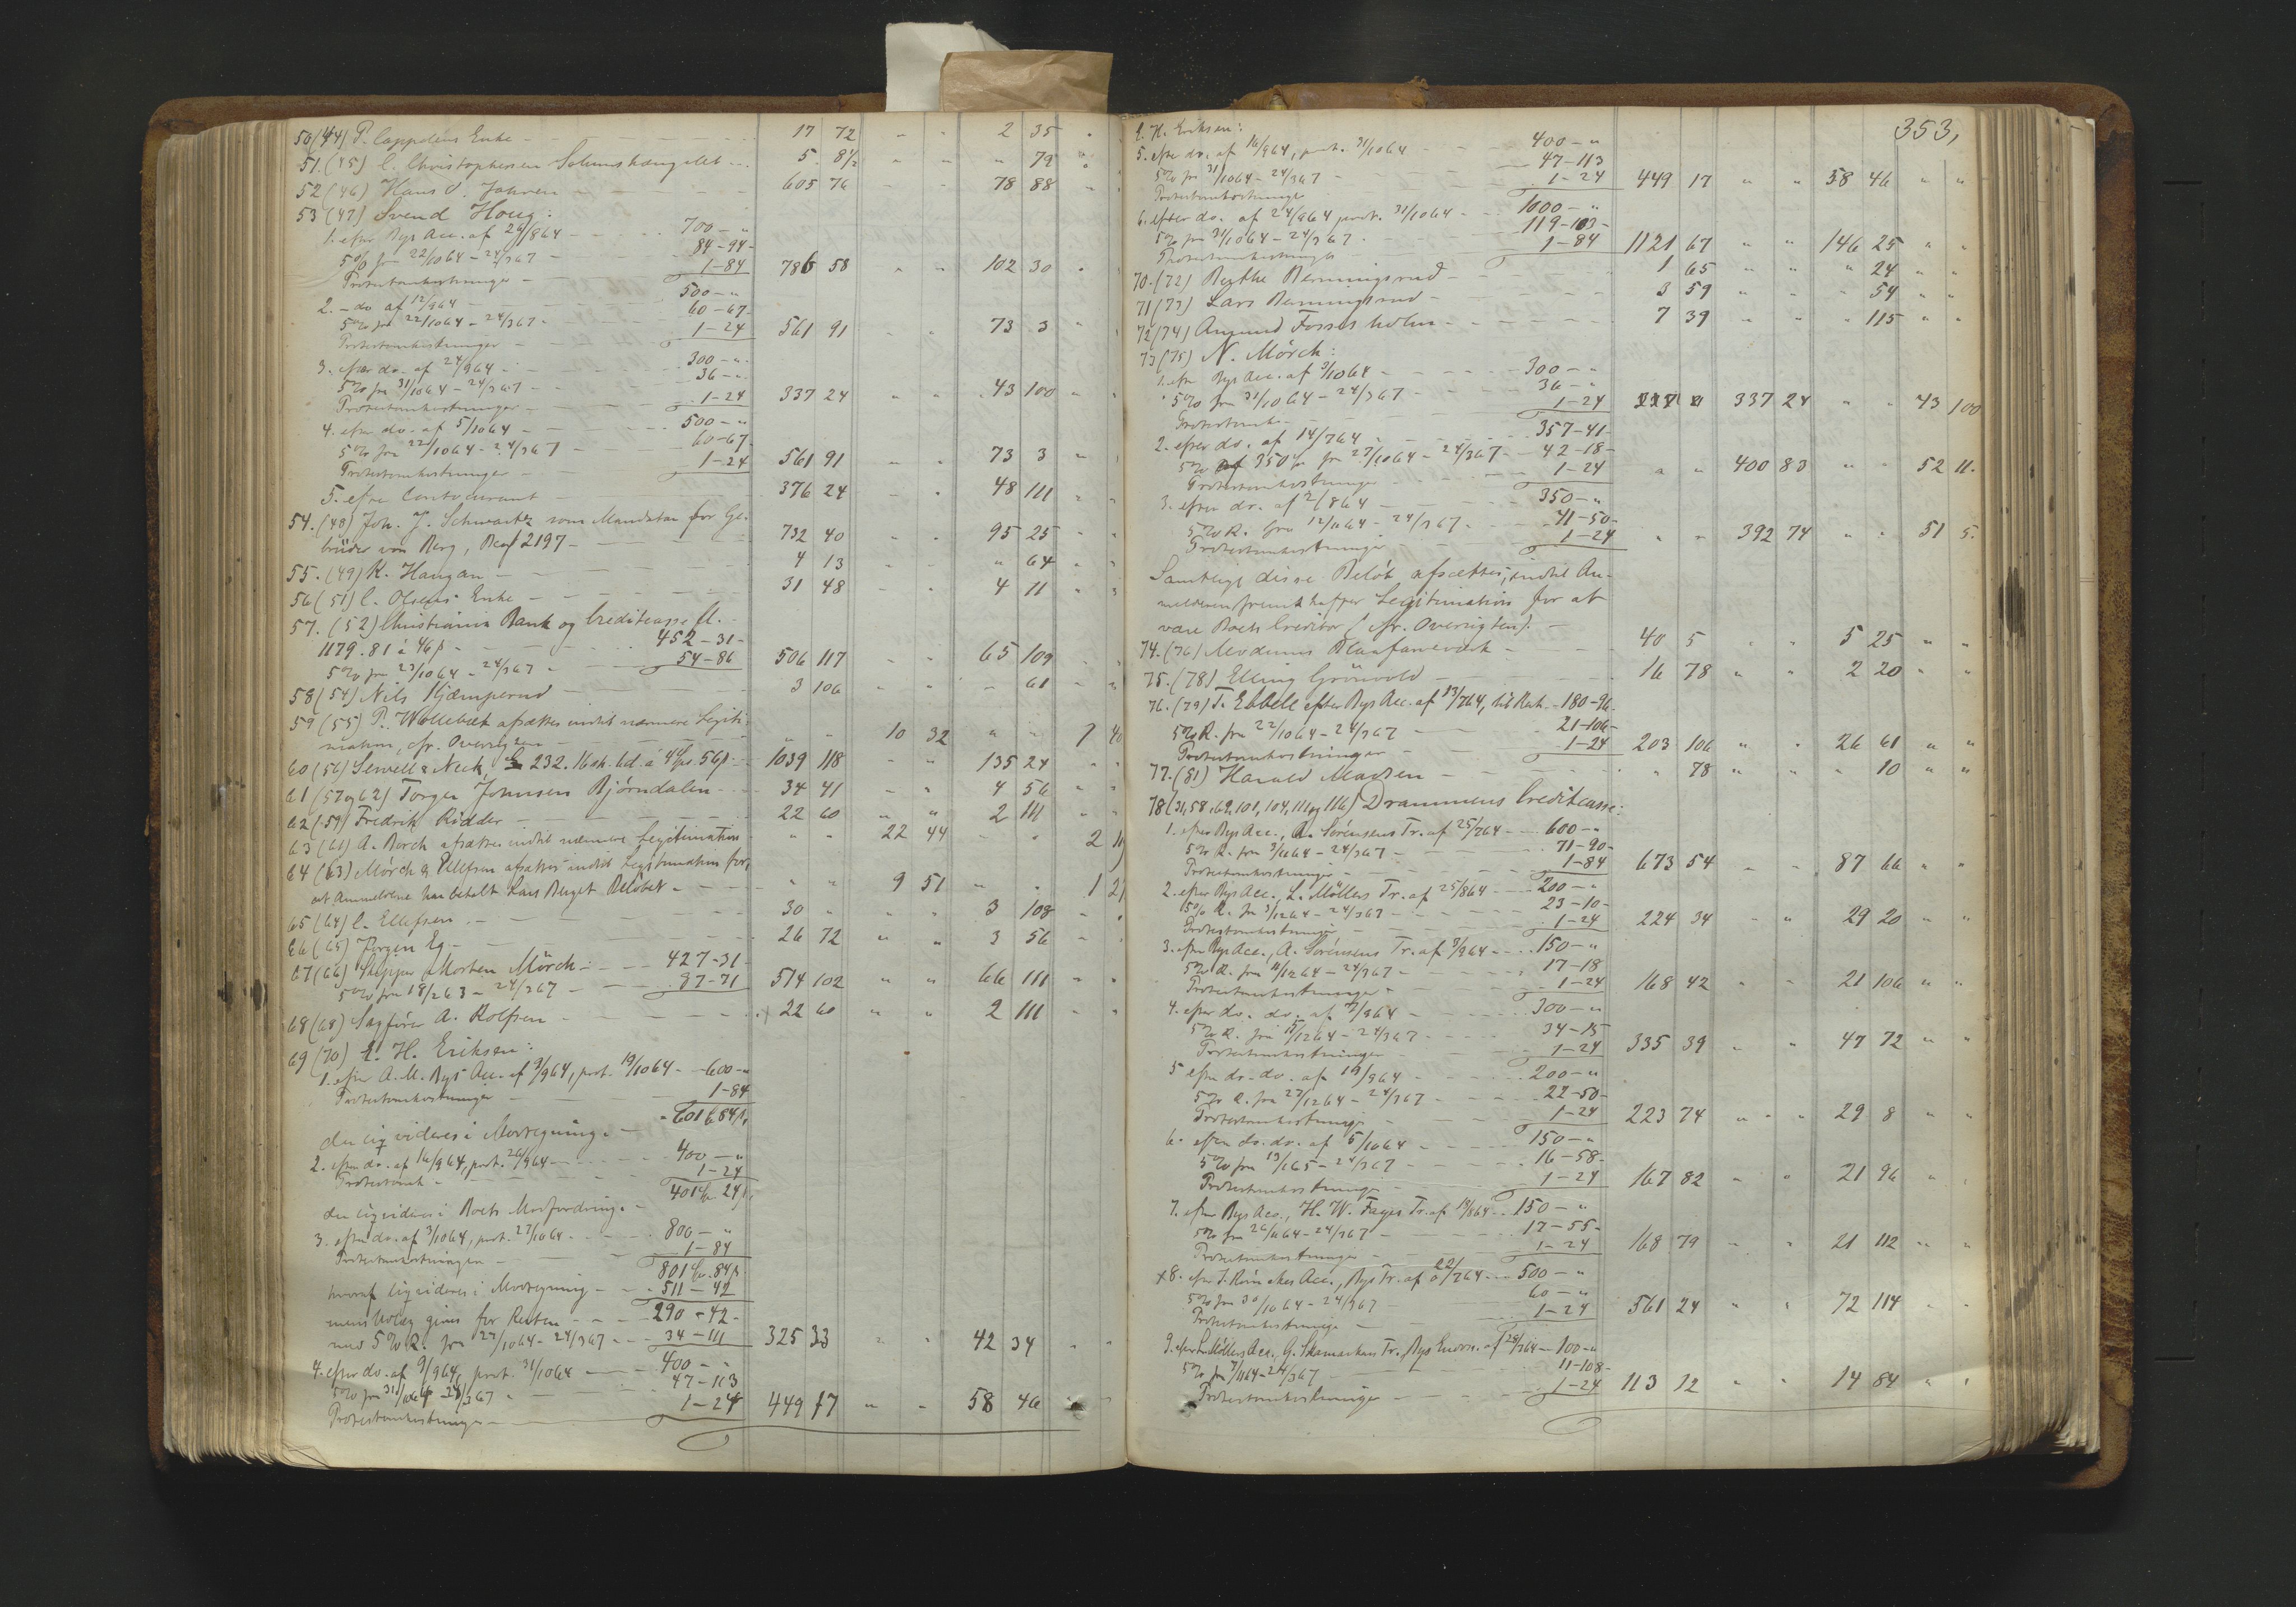 50 (44) P. Cappelens Enke - 17 72 " " 2 35 "
51. (45) C. Christophersen 5. 8½ " " " 79 "
52 (46) Hans O. 605 76 - - 78 88 "
53 (47) Svend Houg:
1. efter Bys Acc. af 26/864 - 700 - "
5% fra 22/1064 - 24/367 - 84-94-
Protestomkostninger - 1-84 786 58 " " 102 30 "
2. - do. af 12/964 - 500 - "
5% fra 22/1064 - 24/367 - 60-67-
Protestomkostninger - 1-24 561 91 " " 73 3 "
3. efter do. af 24/964 - 300 - "
5% fra 31/1064 - 24/367 - 36 - "
Protestomkostninger - 1-24 337 24 " " 43 100 "
4. efter do. af 5/1064 - 500 - "
5% fra 22/1064 - 24/367 - 60-67-
Protestomkostninger - 1-24 561 91 " " 73 3 "
5. efter Contocurant 376 24 " " 48 111 "
54. (48) Joh. J. Schwartz som Mandatar for Ge-
brüder von Berg, 2197 - 732 40 " " 95 25 "
55. (49) K. Haugan - 4 13 " " " 64 "
56 (51) C. Olsens Enke - 31 48 " " 4 11 "
57. (52) Christiania Bank og Creditcasse fl.
1179. 81 à 46 β - 452-31-
5% fra 23/1064 - 24/367 - 54-86 506 117 " " 65 109
58 (54) Nils Kjæmperud - 3 106 " " " 61 "
59 (55) P. Wollebæk afsættes indtil nærmere Legiti-
mation, cfr. Oversigten - " " 10 32 " " 1 40
60 (56) Sewell & Neck, £ 232. 16 sh. 6d. à 4 Sp. 56 β - 1039 118 " " 135 24
61 (57 og 62) Torger Johnsen Bjørndalen - 34 41 " " 4 56 "
62 (59) Fredrik Ridder - 22 60 " " 2 111 "
63 (61) A. Borch afsættes indtil nærmere Legitimation " " 22 44 " " 2 11
64 (63) Mörch & Ellefsen afsættes indtil Legitimation for,
at Anmelderne har betalt Lars Berget Beløbet - " " 9 51 " " 1 21
65 (64) C. Ellefsen - 30 " " " 3 108 "
66 (65) Jørgen Eg - 26 72 " " 3 56 "
67 (66) Skipper Morten Mörch - 427-31-
5% fra 18/263 - 24/367 - 87-71 514 102 " " 66 111 "
68 (68) Sagfører A. Rolfsen - 22 60 " " 2 111 "
69 (70) E. H. Eriksen:
1. efter A. M. Bys Acc. af 3/964, prot. 19/1064 - 600 - "
Protestomkostninger - 1-84
der liqvideres i Modregning. - 601 Sp. 84 β,
2. efter do. af 16/964, prot. 26/964 - 400 - "
Protestomk - 1-24
der liqvideres i Boets Modfordring - 401 Sp. 24 β,
3. efter do. af 3/1064, prot. 27/1064 - 800 - "
Protestomkostninger - 1-84
801 Sp. 84 β
hvoraf liqvideres i Modregning - 511-42
mens Udlæg gives for Resten - 290-42-
med 5% R. fra 27/1064 - 24/367 - 34-111 325 33 " " 42 34
4. efter do. af 9/964, prot. 31/1064 - 400 - "
5% fra 31/1064 - 24/367 - 47-113
Protestomkostninger - 1-24 449 17 " " 58 46 "
353,
E. H. Eriksen:
5. efter do. af 16/964, prot. 31/1064 - 400 - "
5% fra 31/1064 - 24/367 - 47-113
Protestomkostninger 1-24 449 17 " " 58 46 " "
6. efter do. af 24/964 prot. 31/1064 - 1000 - "
5% fra 31/1064 - 24/367 - 119-103-
Protestomkostninger 1-84 1121 67 " " 146 25 " "
70. (72) Berthe Benningsrud - 1 65 " " " 24 " "
71 (73) Lars Benningsrud - 3 59 " " " 54 " "
72 (74) Amund Fossesholm - 7 39 " " " 115 " "
73 (75) N. Mörch:
1. efter Bys Acc. af 3/1064 - 300 - "
5% fra 31/1064 - 24/367 - 36 - "
Protestomk - 1-24 337 24 " " 43 100
2. efter do. af 14/764 - 357-41-
5% af 350 Sp. fra 27/1064 - 24/367 - 42-18-
Protestomkostninger 1-24 " " 400 83 " " 52 11.
3. efter do. af 2/864 - 350 - "
5% R. fra 12/1164 - 24/367 - 41-50-
Protestomkostninger 1-24 " " 392 74 " " 51 5.
Samtlige disse Beløb afsættes, indtil An-
melderen fremskaffer Legitimation for at
være Boets Creditor (cfr. Oversigten). -
74. (76) Modums Blaafarveværk - 40 5 " " 5 25 " "
75. (78) Elling Grönvold - 16 78 " " 2 20 " "
76. (79) T. Ebbele efter Bys Acc. af 13/764, til Rest - 180-96-
5% R. fra 22/1064 - 24/367 - 21-106-
Protestomkostninger - 1-24 203 106 " " 26 61 " "
77. (81) Harald Madsen - " 78 " " " 10 " "
78 (31, 58, 69, 101, 104, 111 og 116) Drammens Creditcasse:
1. efter Bys Acc., A. Sörensens Tr. af 25/764 - 600 - "
5% R. fra 3/1164 - 24/367 - 71-90-
Protestomkostninger - 1-84 673 54 " " 87 66 " "
2. efter Bys Acc., L. Möllers Tr. af 25/864 - 200 - "
5% R. fra 3/1264 - 24/367 - 23-10-
Protestomkostninger - 1-24 224 34 " " 29 20 " "
3. efter Bys Acc., A. Sörensens Tr. af 9/964 - 150 - "
5% R. fra 11/1264 - 24/367 - 17-18
Protestomkostninger - 1-24 168 42 " " 21 106 " "
4. efter do. do. af 9/964 - 300 - "
5% R. fra 15/1264 - 24/367 - 34-15
Protestomkostninger - 1-24 335 39 " " 47 72 " "
5 efter do. do. af 19/964 - 200 - "
5% R. fra 27/1264 - 24/367 - 22-50-
Protestomkostninger - 1-24 223 74 " " 29 8 " "
6. efter do. do. af 5/1064 - 150 - "
5% fra 13/165 - 24/367 - 16-58-
Protestomkostninger - 1-24 167 82 " " 21 96 " "
7. efter Bys Acc., H. W. Fayes Tr. af 19/864 - 150 - "
5% fra 26/1164 - 24/367 - 17-55-
Protestomkostninger - 1-24 168 79 " " 21 112 " "
+8. efter J. Acc., Bys Tr. af 22/764 - 500 - "
5% fra 30/1064 - 24/367 - 60 - "
Protestomkostninger - 1-24 561 24 " " 72 114 " "
9. efter L. Möllers Acc., G. Tr., Bys Endoss. af 29/764 - 100 - "
5% fra 3/1164 - 24/367 - 11-108-
Protestomkostninger - 1-24 113 12 " " 14 84 " "